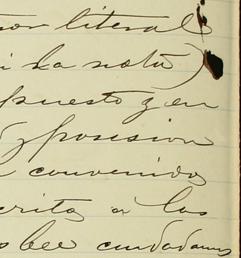 literal
la nota)
puesto y en
y posesion
convenido
crita a los
ciudadanos